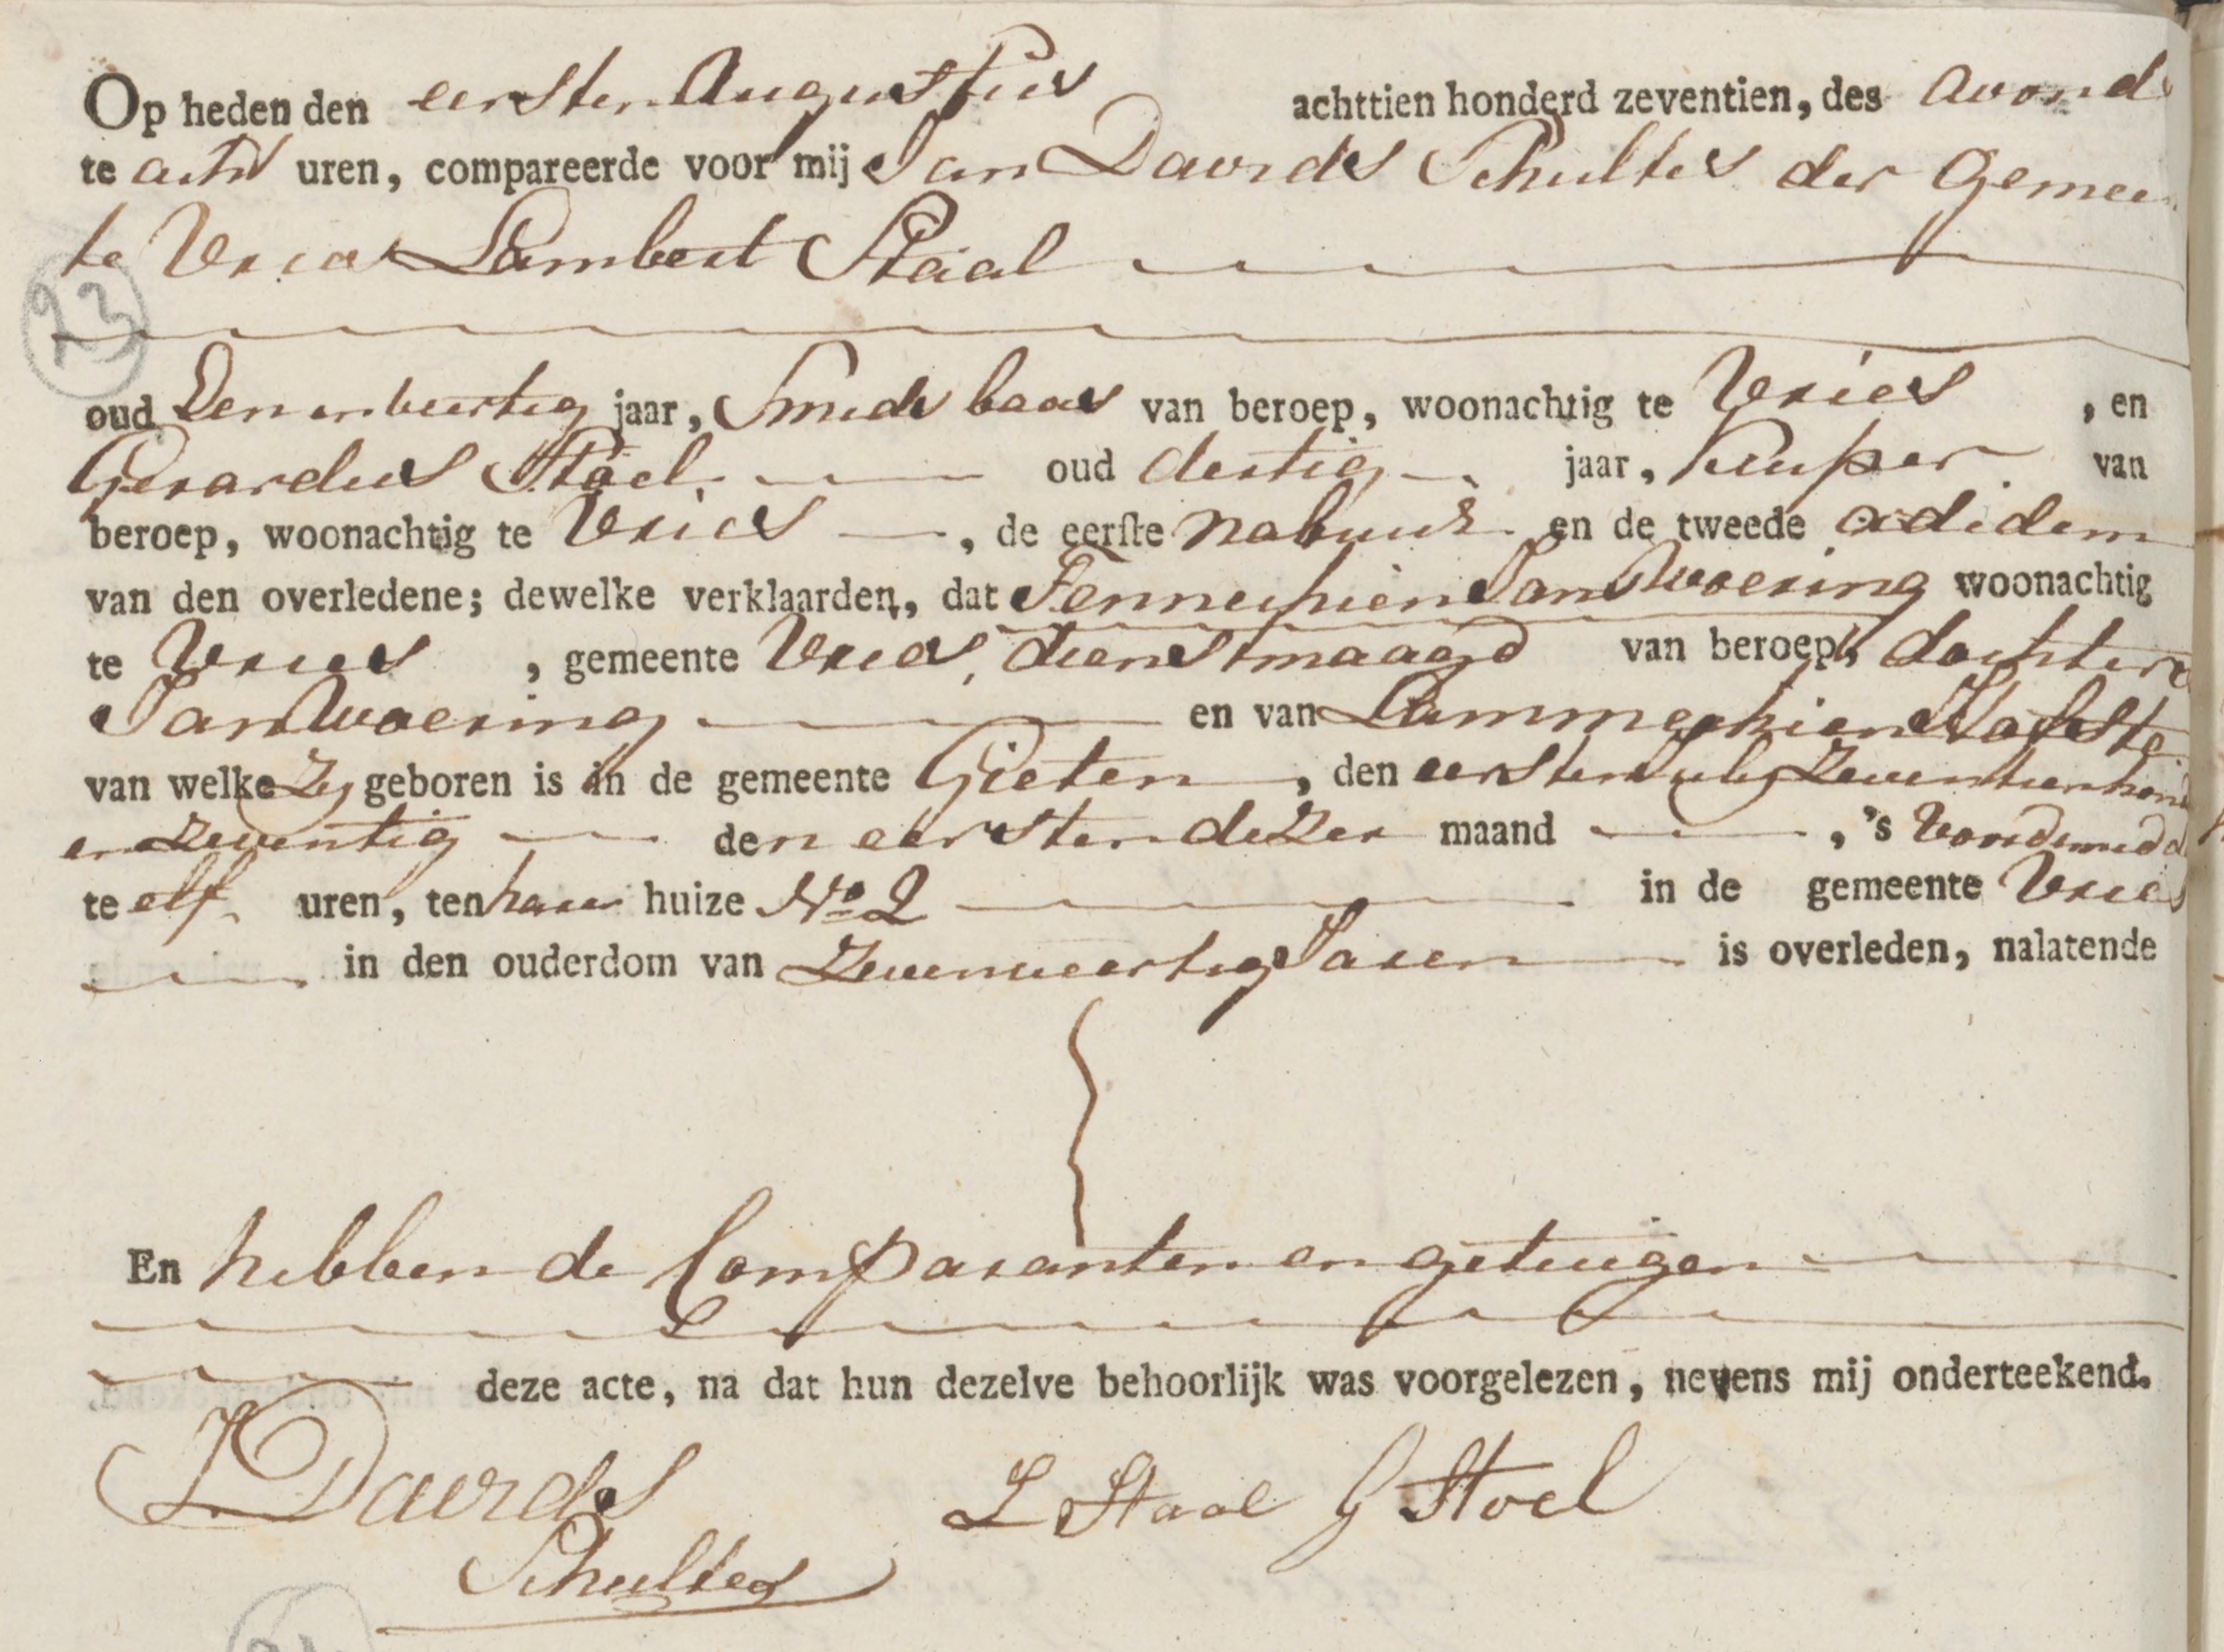 Op heden den eersten Augustus achttien honderd zeventien, des avonds
te acht uren, compareerde voor mij Jan Davids Schultes der Gemeen
te Vries Lambert Staal
23
oud Een en veertig jaar, Smids baas van beroep, woonachtig te Vries, en
Gerardus Stoel oud dertig jaar, kuiper van
beroep, woonachtig te Vries, de eerste nabuur en de tweede adidem
van den overledene; dewelke verklaarden, dat Fennechien Jan Woering woonachtig
te Vries, gemeente Vries, dienstmaagd van beroep, dochter v
Jan Woering en van Lammechien
van welke zy geboren is in de gemeente Gieten, den eersten July zeventienhond
en zeventig den eersten dezer maand, 's voordemidd
te elf uren, ten haren huize No 2 in de gemeente Vries
in den ouderdom van zevenveertig Jaren is overleden, nalatende
En hebben de Comparanten en getuigen
deze acte, na dat hun dezelve behoorlijk was voorgelezen, nevens mij onderteekend.
J Davids L Staal G Stoel
Schultes